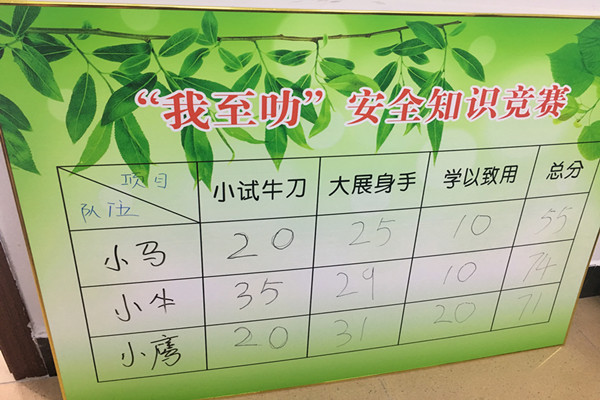 “我至叻”安全知识竞赛
项目 小试牛刀 大展身手 学以致用 总分
队伍
小马 20 25 10 55
小牛 35 29 10 74
小鹰 20 31 20 71